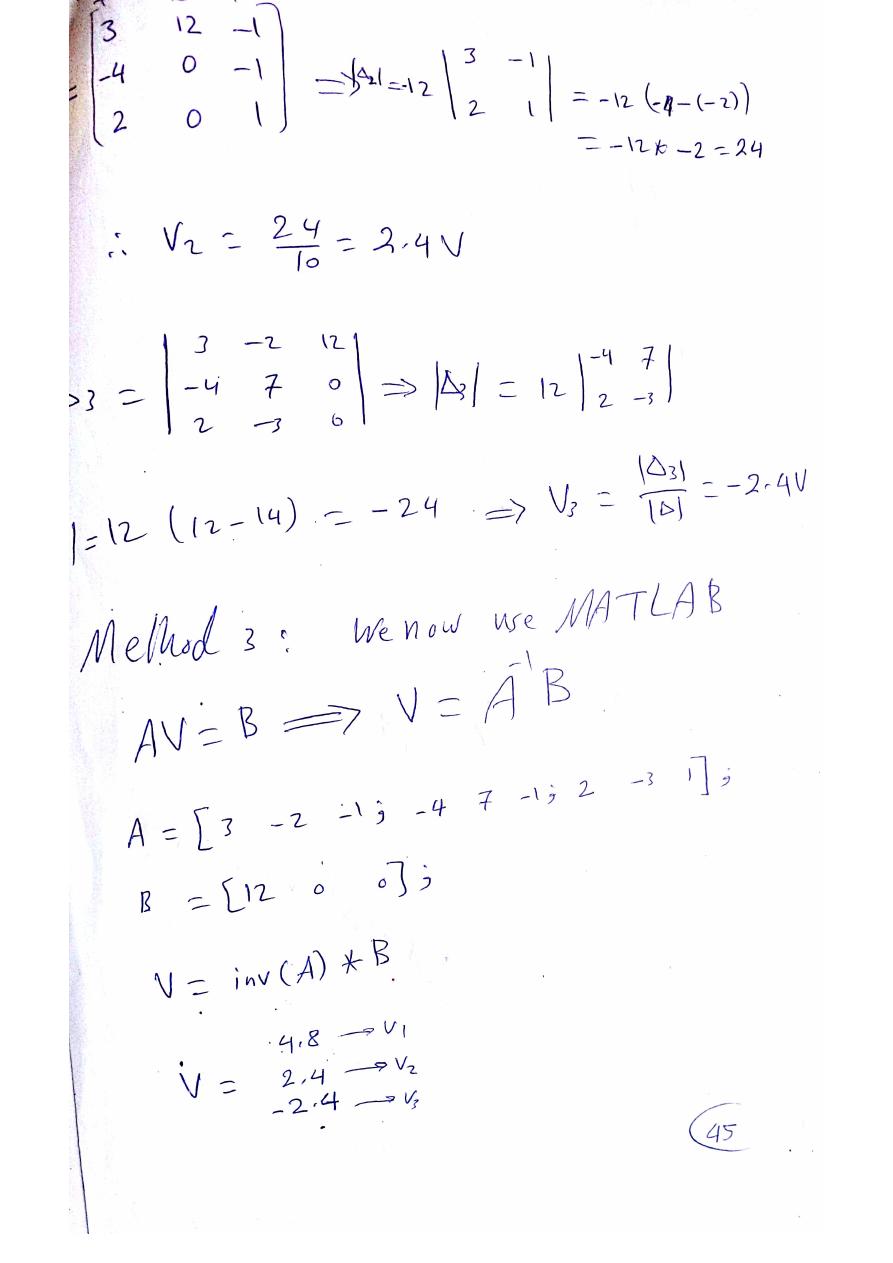 = [3 12 -1
-4 0 -1
2 0 1] ⇒ |Δ2| = -12 |3 -1
2 1| = -12 (-4-(-2))
= -12 * -2 = 24
∴ V2 = 24/10 = 2.4 V
3 = |3 -2 12
-4 7 0
2 -3 0| ⇒ |Δ3| = 12 |-4 7
2 -3|
| = 12 (12-14) = -24 ⇒ V3 = |Δ3|/|Δ| = -2.4V
Method 3: We now use MATLAB
AV = B ⟹ V = A⁻¹B
A = [3 -2 -1; -4 7 -1; 2 -3 1];
B = [12 0 0];
V = inv(A) * B
V = 4.8 → V1
2.4 → V2
-2.4 → V3
45